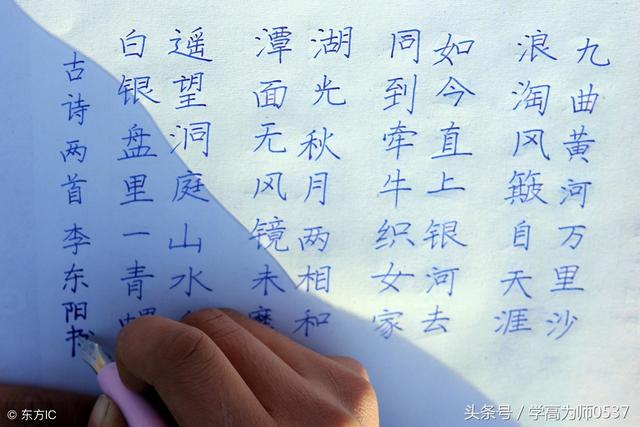 九曲黄河万里沙
浪淘风簸自天涯
如今直上银河去
同到牵牛织女家
湖光秋月两相和
潭面无风镜未磨
遥望洞庭山水
白银盘里一青螺
古诗两首李东阳书
© 东方IC
头条号 / 学高为师0537